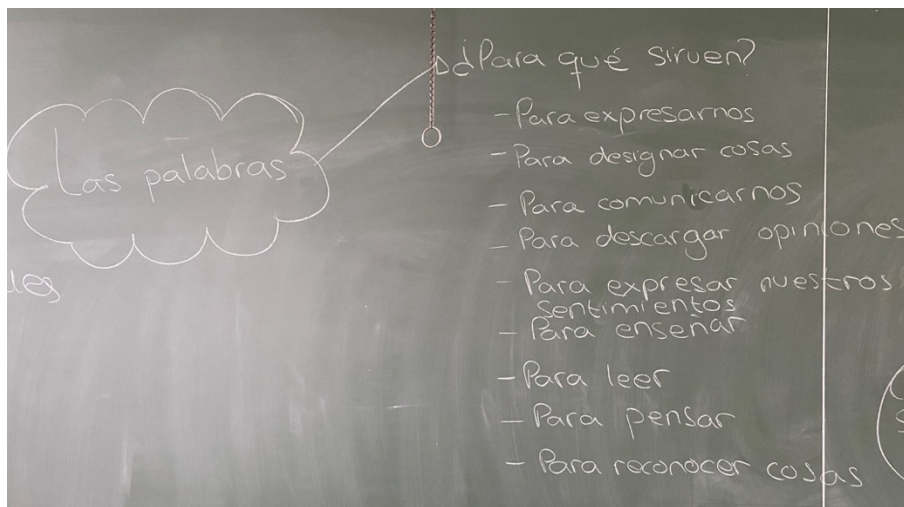 Las palabras
¿Para qué sirven?
- Para expresarnos
- Para designar cosas
- Para comunicarnos
- Para descargar opiniones
- Para expresar nuestros
sentimientos
- Para enseñar
- Para leer
- Para pensar
- Para reconocer cosas